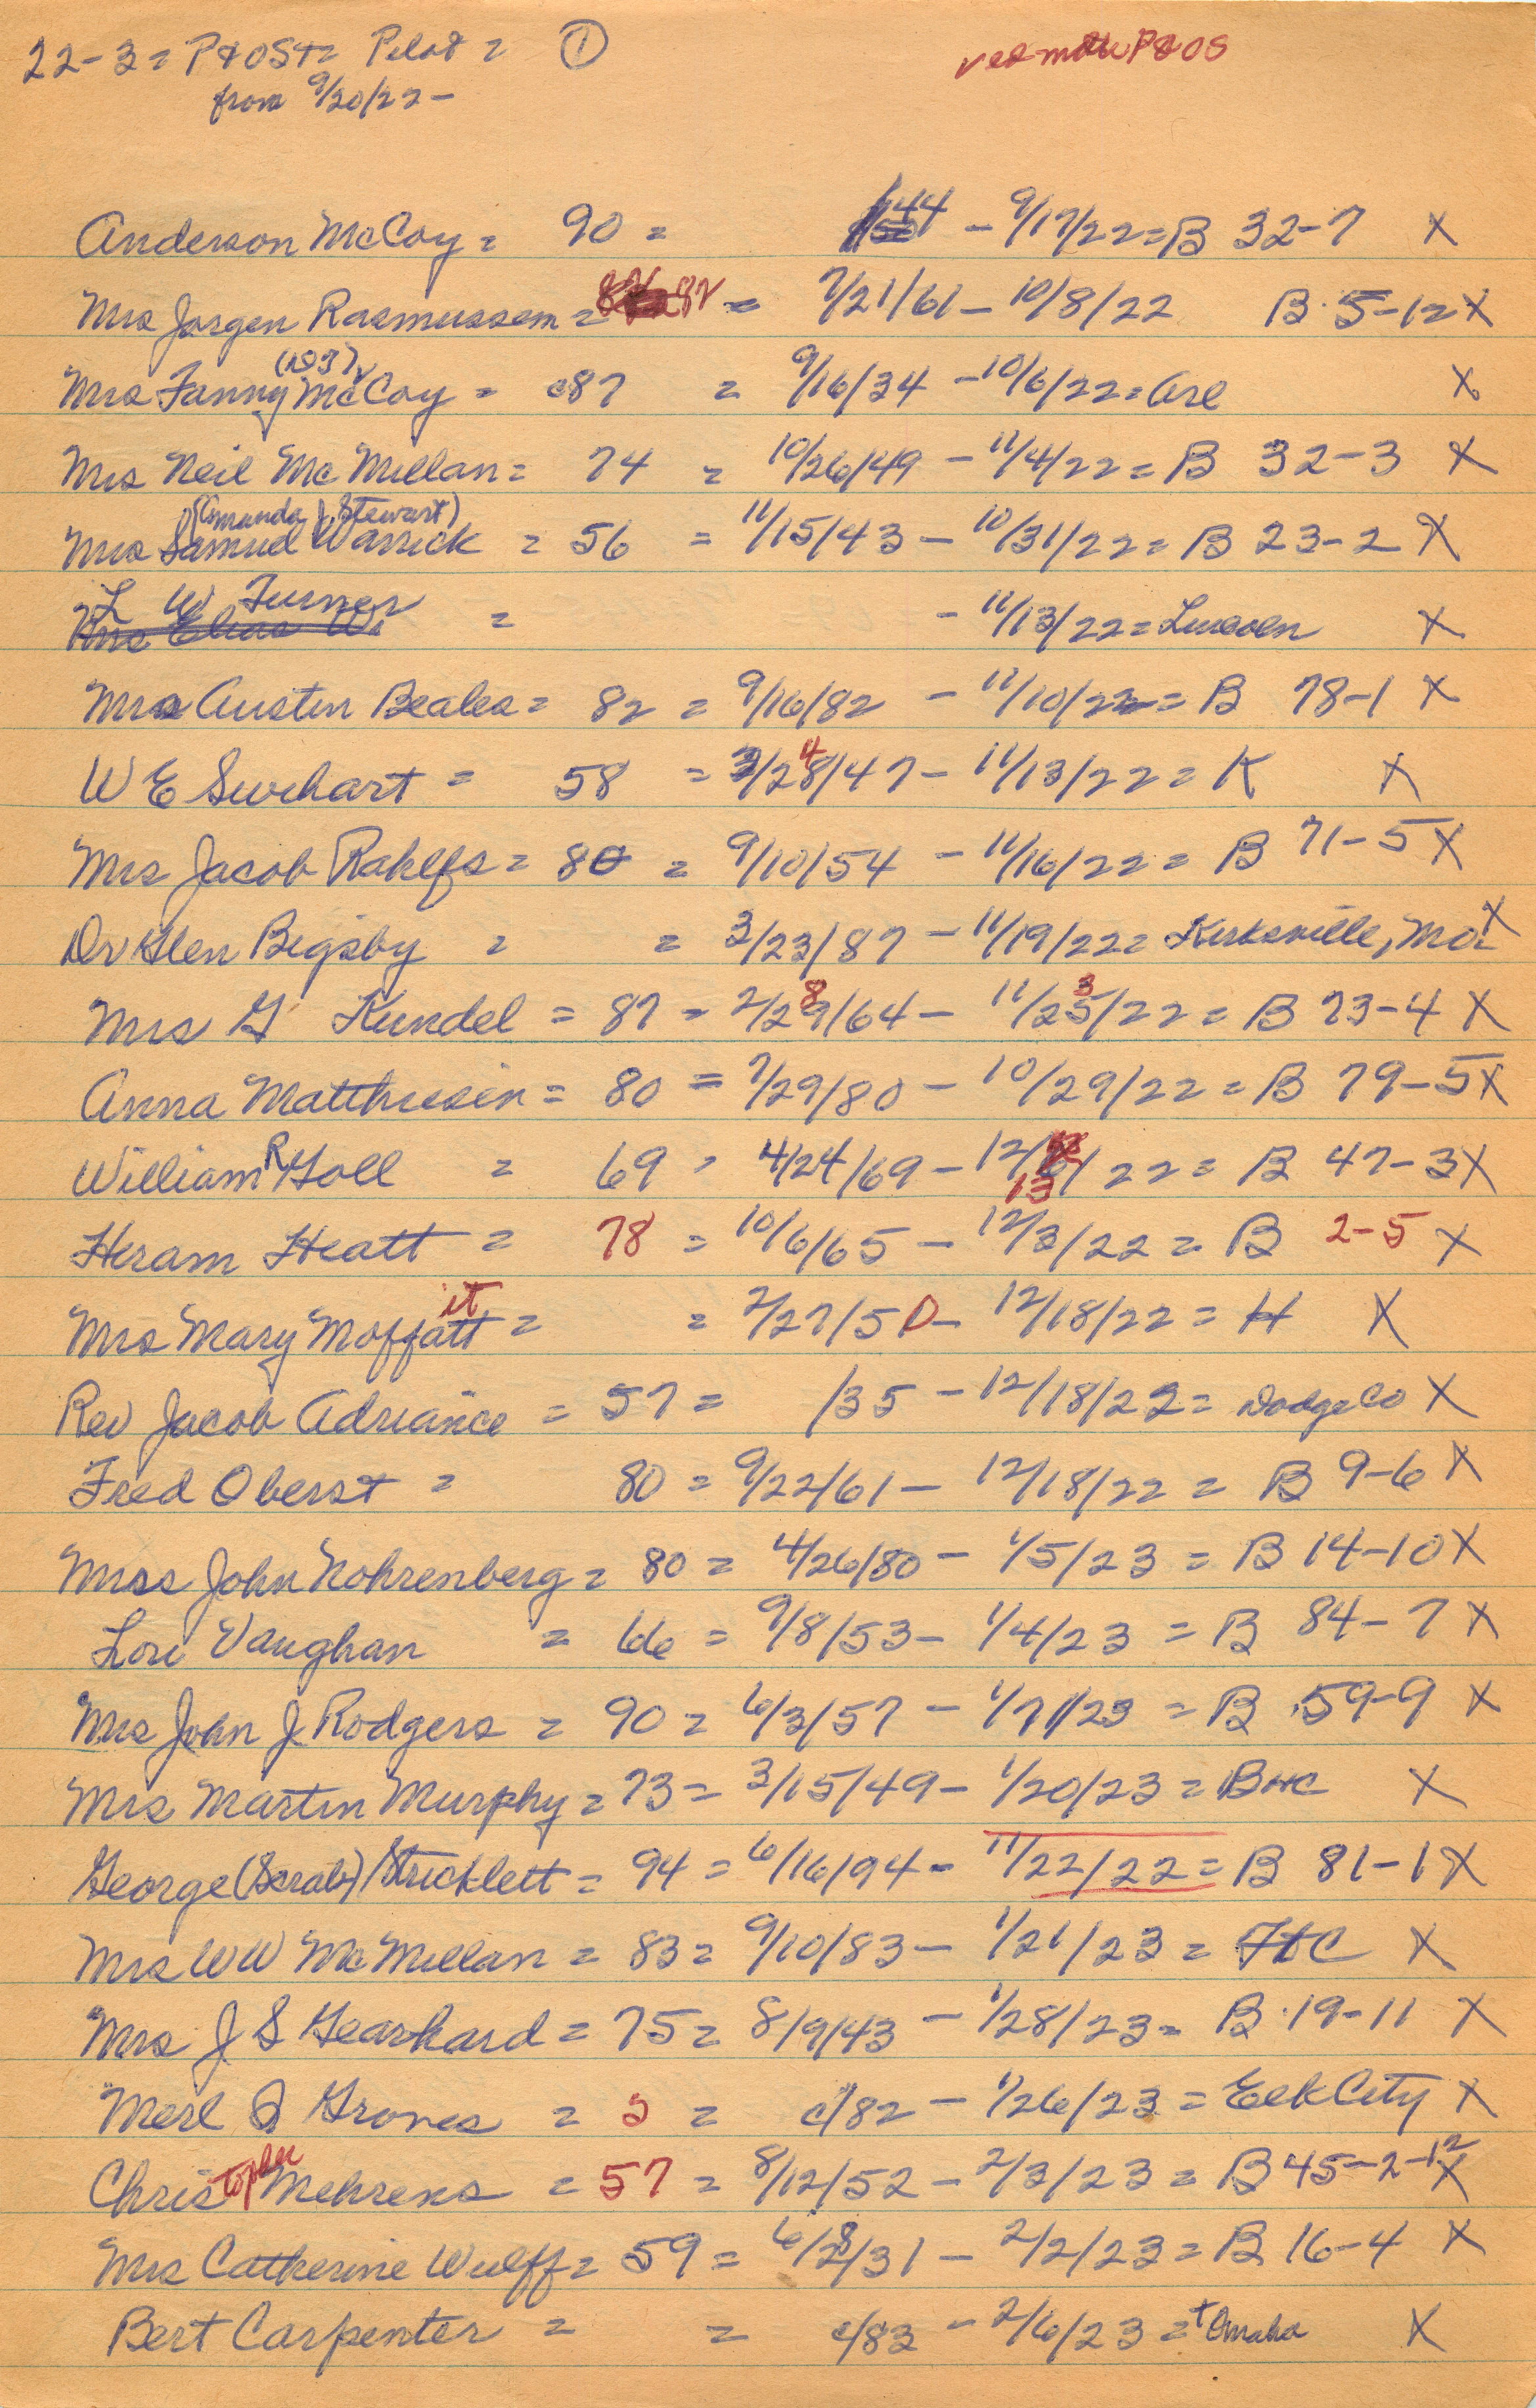 22-3= P&OS += Pilot = ①
red - mate P&OS
from 9/20/22 -
Anderson McCoy = 90 = /44 - 9/17/22 = B 32-7 X
Mrs Jorgen Rasmussen = 82 = 7/21/61 - 10/8/22 B 5-12 X
Mrs Fanny McCoy = c87 = 9/16/34 - 10/6/22 = Arl X
Mrs Neil McMillan = 74 = 10/26/49 - 11/4/22 = B 32-3 X
(Amanda J. Stewart)
Mrs Samuel Warrick = 56 = 11/15/43 - 10/31/22 = B 23-2 X
L W Turner
Mrs Elias W. = - 11/13/22 = Lincoln X
Mrs Austin Beales = 82 = 9/16/82 - 11/10/22 = B 78-1 X
W E Swihart = 58 = 3/28/47 - 11/13/22 = K X
Mrs Jacob Rahlfs = 80 = 9/10/54 - 11/16/22 = B 71-5 X
Dr Glen Bigsby = = 3/23/87 - 11/19/22 = Kirksville, Mo. X
Mrs G Kundel = 87 = 2/29 8/64 - 11/25 3/22 = B 73-4 X
Anna Matthiesen = 80 = 7/29/80 - 10/29/22 = B 79-5 X
William R Goll = 69 = 4/24/69 - 12/13/22 = B 47-3 X
Hiram Hiatt = 78 = 10/6/65 - 12/3/22 = B 2-5 X
Mrs Mary Moffatt it = = 2/27/50 - 12/18/22 = H X
Rev Jacob Adriance = 57 = /35 - 12/18/22 = Dodge Co X
Fred Oberst = 80 = 9/22/61 - 12/18/22 = B 9-6 X
Miss John Nohrenberg = 80 = 4/26/80 - 1/5/23 = B 14-10 X
Lori Vaughan = 66 = 9/8/53 - 1/4/23 = B 84-7 X
Mrs John J Rodgers = 90 = 6/3/57 - 1/7/23 = B 59-9 X
Mrs Martin Murphy = 73 = 3/15/49 - 1/20/23 = BHC X
George (Scrab) Stricklett = 94 = 6/16/94 - 11/22/22 = B 81-1 X
Mrs WW McMillan = 83 = 9/10/83 - 1/21/23 = FtC X
Mrs J S Gearhard = 75 = 8/9/43 - 1/28/23 = B 19-11 X
Merl J Groves = 2 = c/82 - 1/26/23 = Elk City X
Christopher Mehrens = 57 = 8/12/52 - 2/3/23 = B 45-2-12 X
Mrs Catherine Wulff = 59 = 6/28/31 - 2/2/23 = B 16-4 X
Bert Carpenter = = c/83 - 2/6/23 = + Omaha X